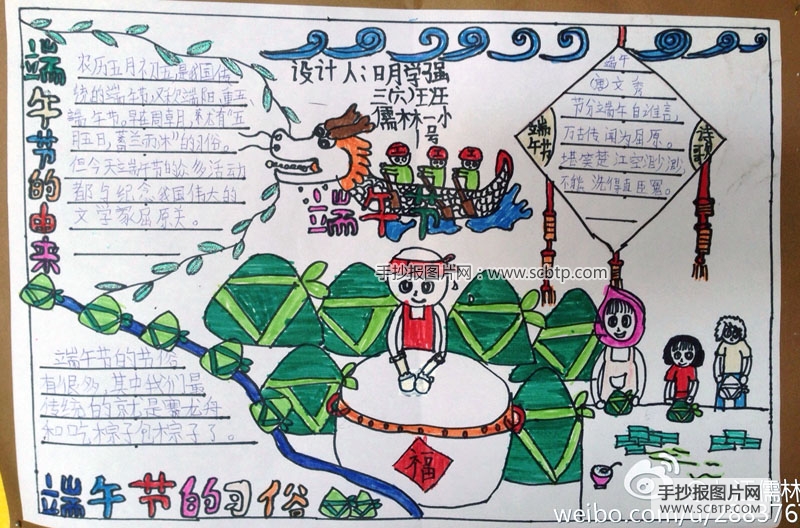 端午节的由来
农历五月初五是我国传
统的端午节,又称端阳、重五
端午节。早在周朝,就有“五
月五日,蓄兰而沐”的习俗。
但今天端午节的众多活动
都与纪念我国伟大的
文学家屈原有关。
设计人:明学强
三(六)班
儒林一小
1号
端午节
端午
(唐)文秀
节分端午自谁言,
万古传闻为屈原。
堪笑楚江空渺渺,
不能洗得直臣冤。
端午节
诗歌
手抄报图片网:www.scbtp.com
端午节的节俗
有很多,其中我们最
传统的就是赛龙舟
和吃粽子包粽子了。
福
端午节的习俗
儒林
手抄报图片网
WWW.SCBTP.COM